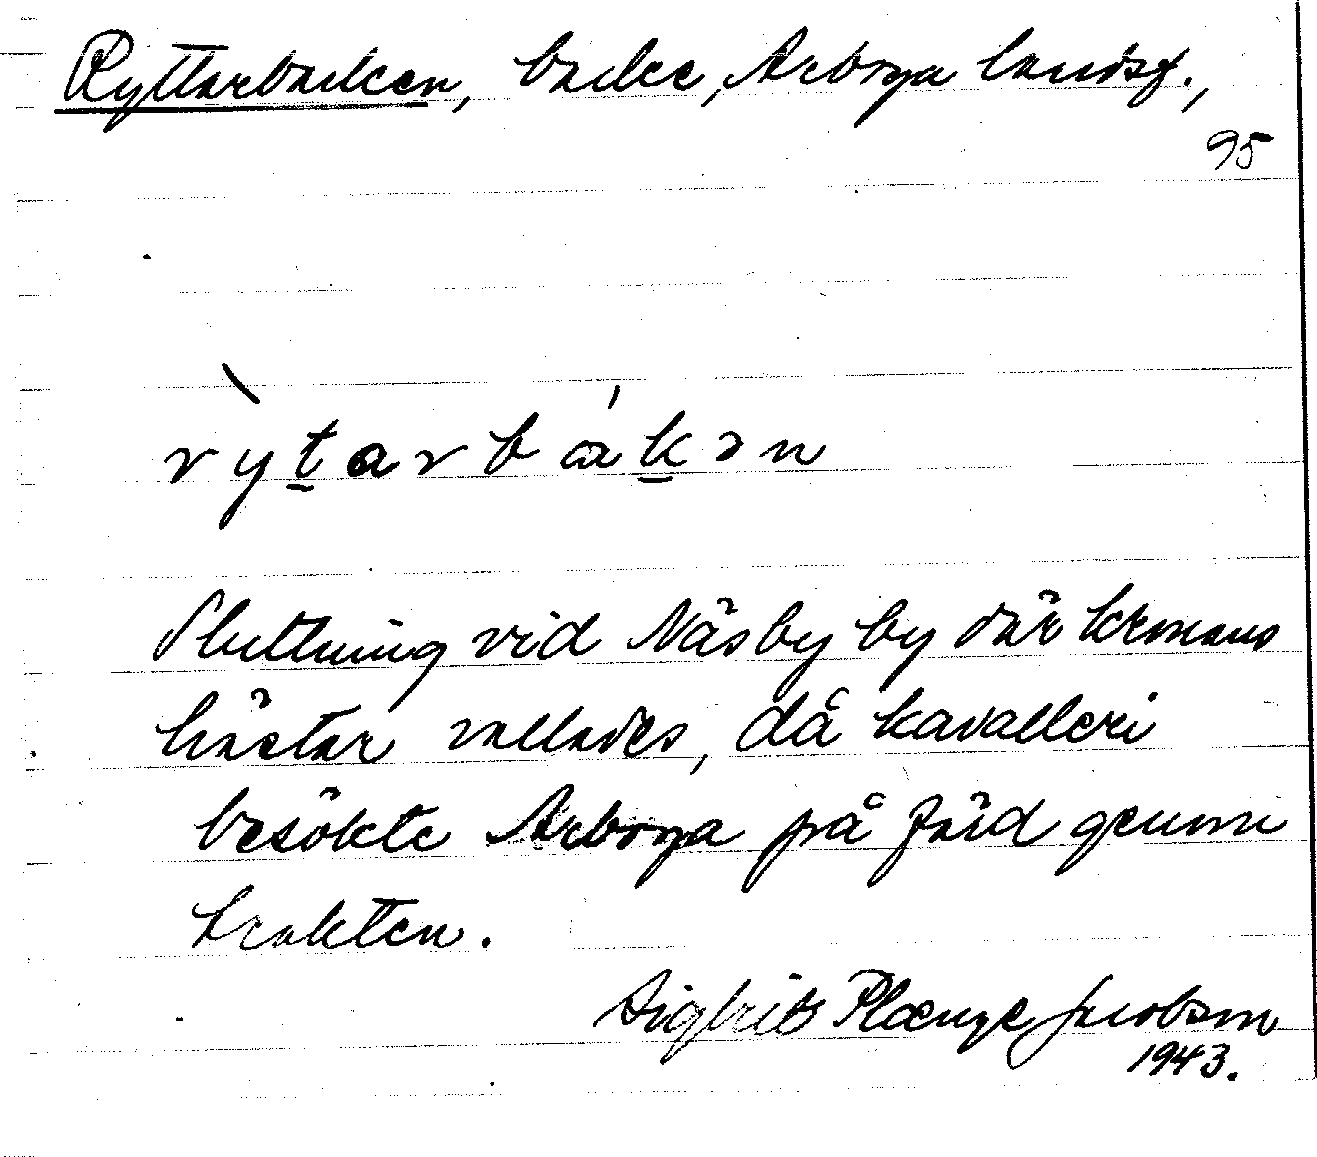 Ryttarbacken, backe, Arboga landsf.,
95
rỳt̲arbák̲ən
Sluttning vid Näsby by där kronans
hästar vallades, då kavalleri
besökte Arboga på färd genom
trakten.
Sigbrit Plænge Jacobson
1943.